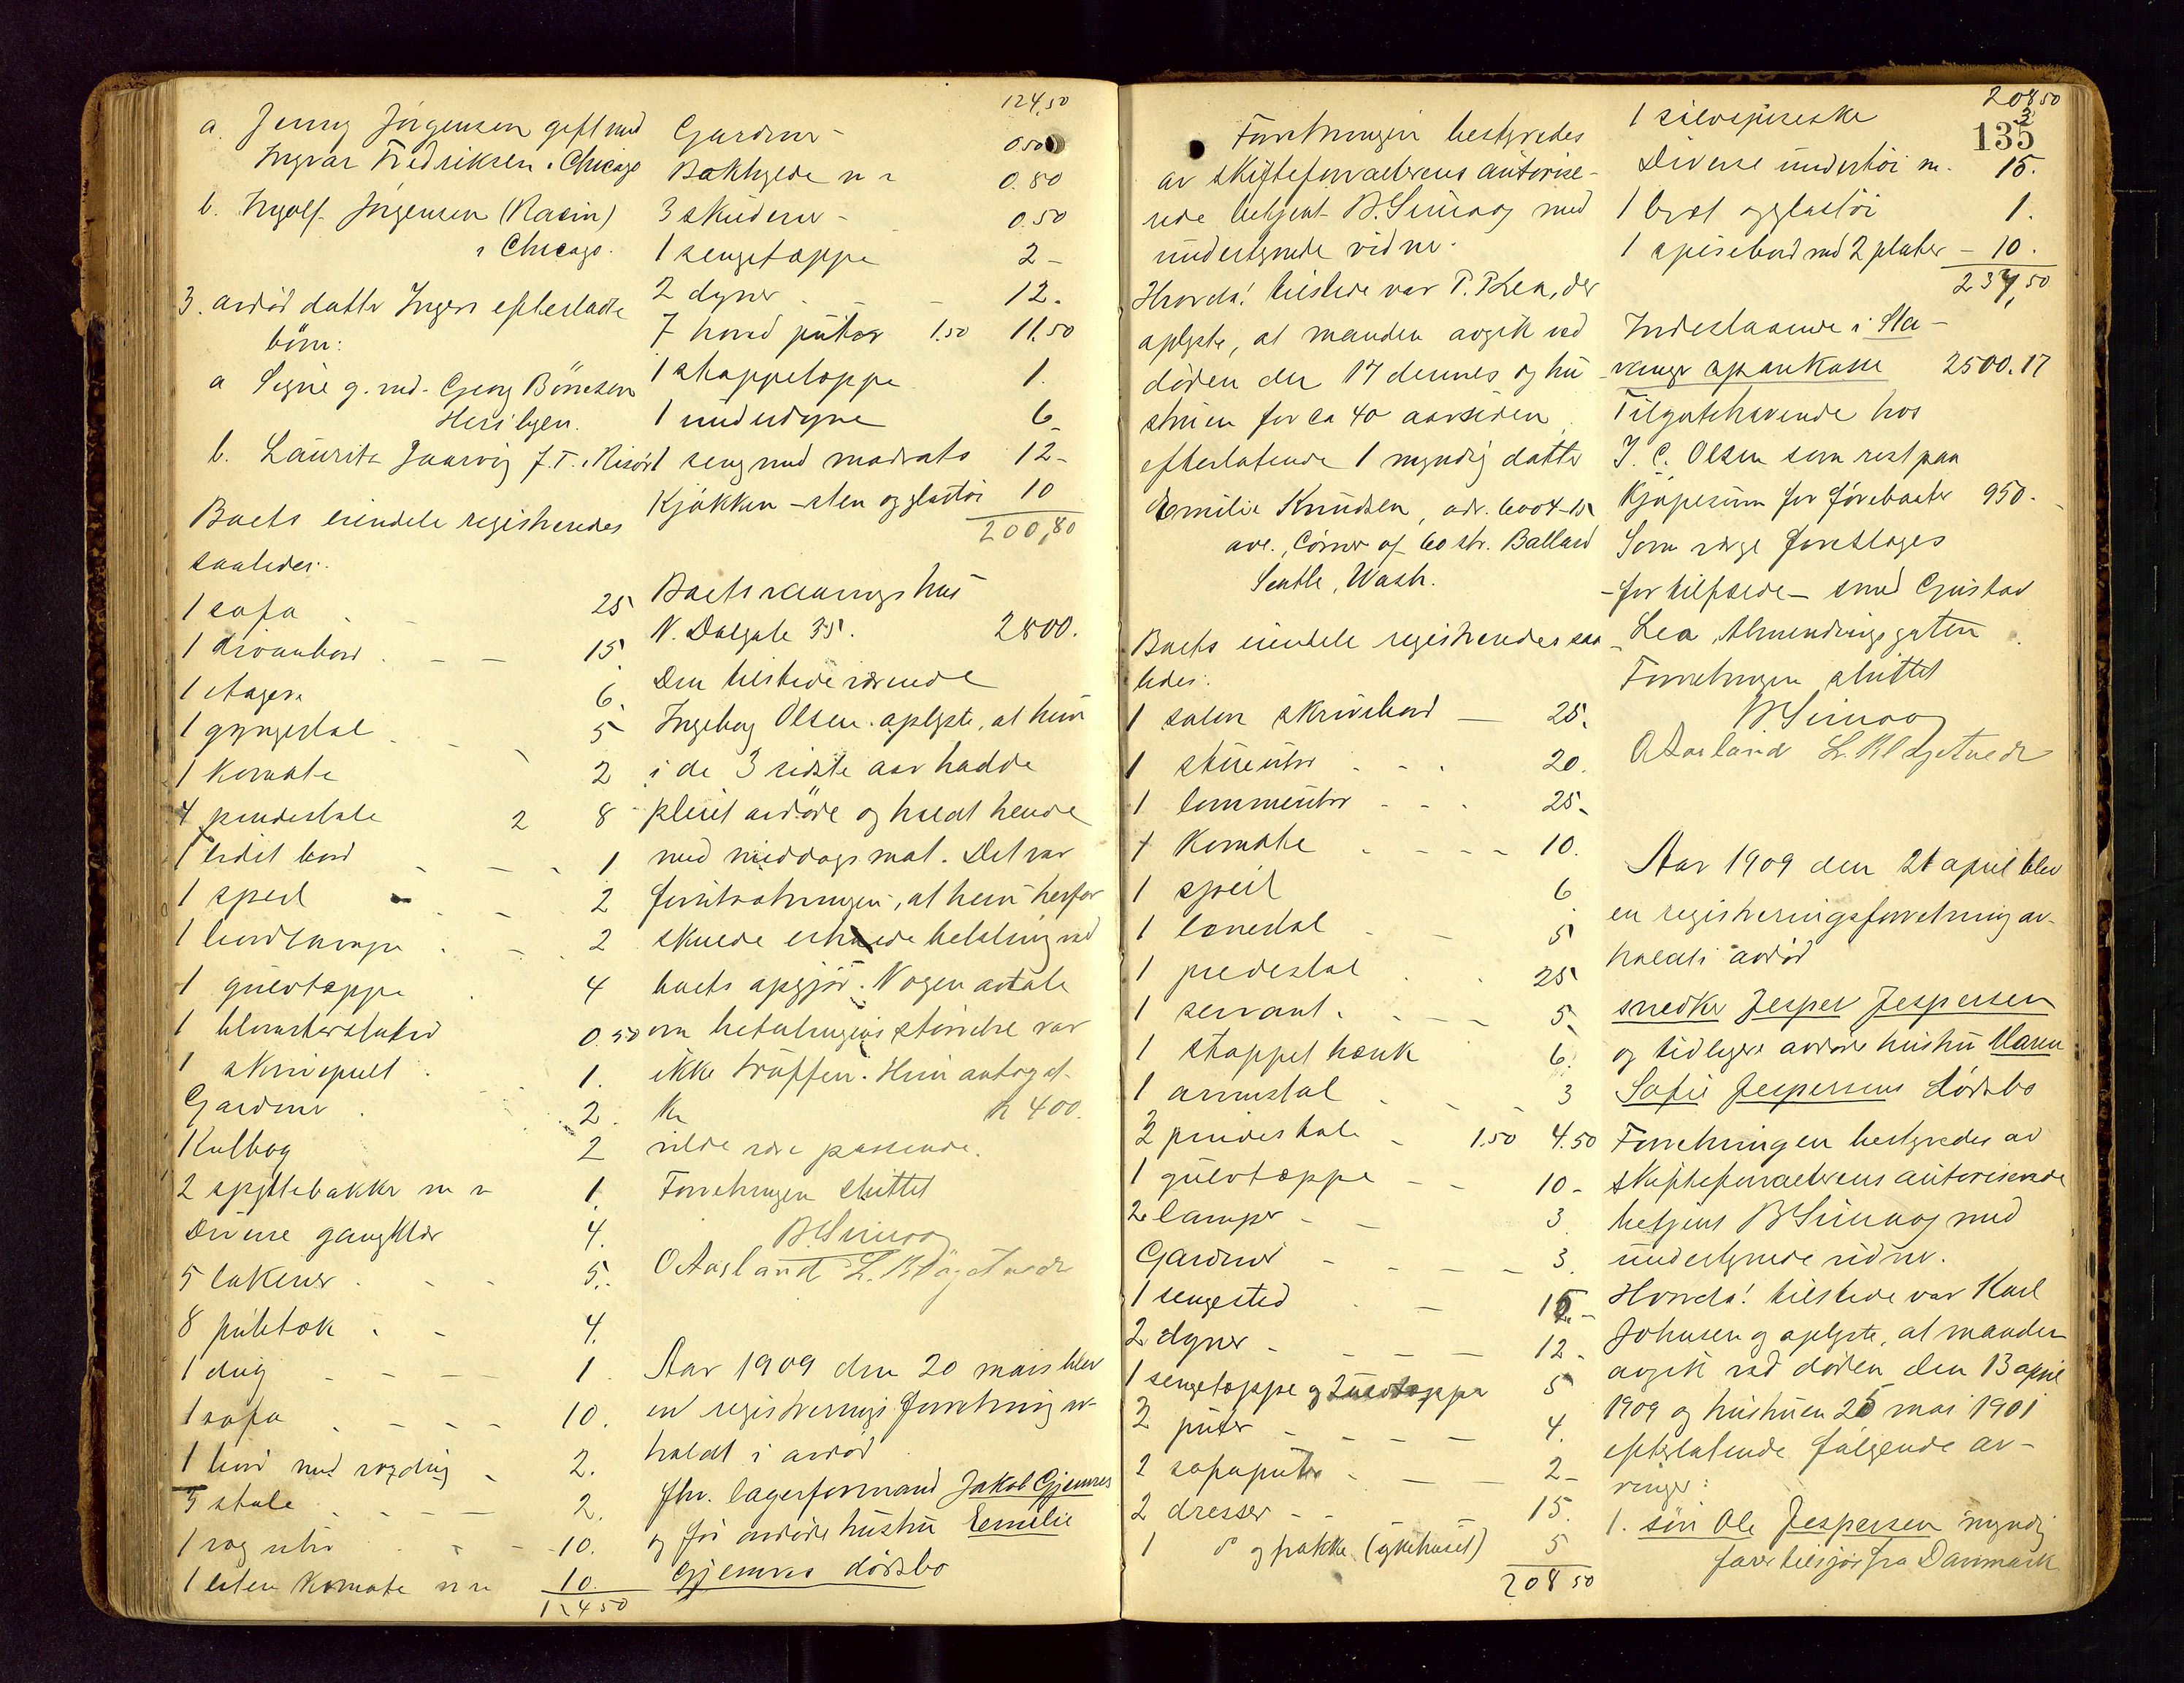 a. Jenny Jörgensen gift med
Ingvar Fredriksen i Chicago
b. Ingolf Jörgensen (Racin)
i Chicago.
3. avdöd datter Ingers efterlatte
börn:
a Signe g. med Georg Börresen
b. Laurits Jaarvig f. T. i Risör
Boets eiendele registreredes
saaledes:
1 sofa 25
1 divanbord 15
1 etagere 6.
1 gyngestol 5
1 komode 2
4 pindestole 2 8
1 lidet bord 1
1 speil 2
1 bordlampe 2
1 gulvtæppe 4
1 blomsterstativ 0.50
1 skrivepult 1.
Gardiner 2
Kulbox 2
2 spyttebakker m m 1.
Diverse gangklær 4.
5 lakener 5.
8 putetræk 4.
1 dug 1
1 sofa 10.
1 bord med voxdug 2.
3 stole 2.
1 væg uhr 10.
1 liten komode m m 10.
124 50
124,50
Gardiner 0.50
Bokhylde m m 0.80
3 skuderer 0.50
1 sengetæppe 2
2 dyner 12.
7 hoved puter 1.50 11.50
1 stoppetæppe 1.
1 underdyne 6
1 seng med madrats 12
Kjøkken-sten og glastöi 10
200,80
Boets vaaningshus
N. Dalgate 35. 2800.
Den tilstedeværende
Ingeborg Olsen oplyste, at hun
i de 3 sidste aar hadde
pleiet avdöde og holdt hende
med middagsmat. Det var
forutsætningen, at hun herfor
skulde erholde betaling ved
boets opgjör. Nogen avtale
om betalingens störrelse var
ikke truffen. Hun antog at
Kr Kr 400.
vilde være passende.
Forretningen sluttet
B Simoog
O Aasland L. Blåget
Aar 1909 den 20 mars blev
en registrerings forretning av-
holdt i avdöd
fhv. lagerformand Jakob Gjemres
og för avdöde hustru Emilie
Gjemres dödsbo
Forretningen bestyredes
av skifteforvalterens autorise-
rede betjent B. Simoog med
undertegnede vidner.
Hvorda! tilstede var P. P. Lea, der
oplyste, at manden avgik ved
döden den 17 dennes og hu-
struen for ca 40 aar siden
efterlatende 1 myndig datter
Emilie Knudsen, adr. 6004-15
ave., Corner of 60 str. Ballard
Seatle, Wash.
Boets eiendele registreredes saa-
ledes:
1 salon skrivebord 25.
1 stueuhr 20.
1 lommeuhr 25.
1 komode 10.
1 speil 6
1 lænestol 5
1 piedestal 25
1 servant 5.
1 stoppet bænk 6.
1 armstol 3
3 pindestole 1.50 4.50
1 gulvtæppe 10
2 lamper 3
Gardiner 3.
1 sengested 15
2 dyner 12
1 sengetæppe og 5
3 puter 4.
2 sofaputer 2
2 dresser 15.
1 do og frakke (sykehuset) 5
208 50
208 50
135
1 sølvspiseske 3
Diverse undertöi m. 15.
1 lyst og glastöi 1.
1 spisebord med 2 plater 10.
237,50
Indestaaende i Sta-
vanger sparekasse 2500.17
Tilgodehavende hos
J. C. Olsen som rest paa
kjøpesum for förebaater 950.
Som værge foreslages
-for tilfælde- smed Gustav
Lea, Almendingsgaten
Forretningen sluttet
B Simoog
O Aasland L. Blåget
Aar 1909 den 21 april blev
en registreringsforretning av-
holdt i avdöd
snedker Jesper Jespersen
og tidligere avdöde hustru Maren
Sofie Jespersens dödsbo
Forretningen bestyredes av
skifteforvalterens autoriserede
betjent B Simoog med
undertegnede vidner.
Hvorda! tilstede var Karl
Johnsen og oplyste, at manden
avgik ved döden den 13 april
1909 og hustruen 25 mai 1901
efterlatende følgende ar-
vinger:
1. sön Ole Jespersen myndig
farer tilsjös fra Danmark